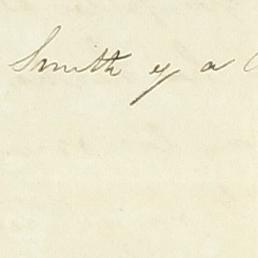 Smith y a